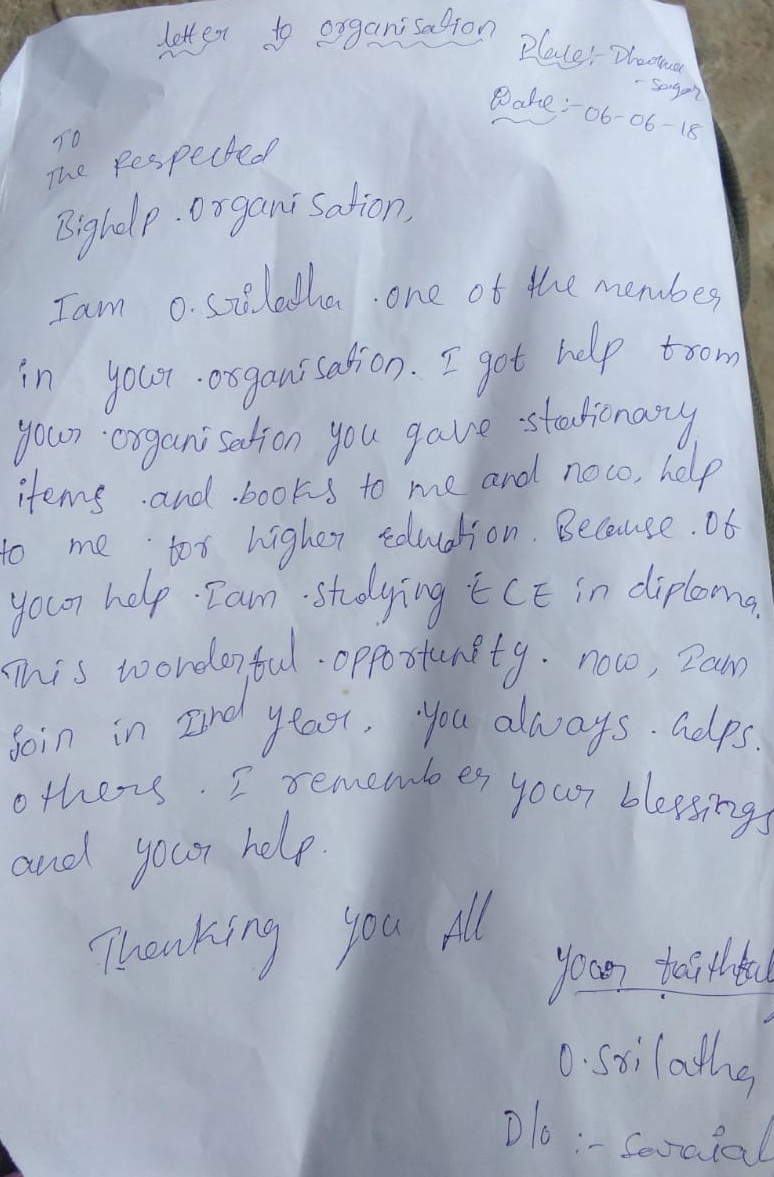 letter to organisation
Place:- Dharma
- Sagar
Date:- 06-06-18
To
The Respected
Bighelp .organisation,
Iam O. Srilatha .one of the member
in your .organisation. I got help from
your organisation you gave stationary
items .and .books to me and now, help
to me for higher education. Because .Of
your help .Iam .studying ECE in diploma.
This wonderful .opportunity. now, Iam
Join in IInd year. .You always . helps.
others. I remember your blessings
and your help.
Thanking you All
your faithful
O.Srilatha
D/o :-